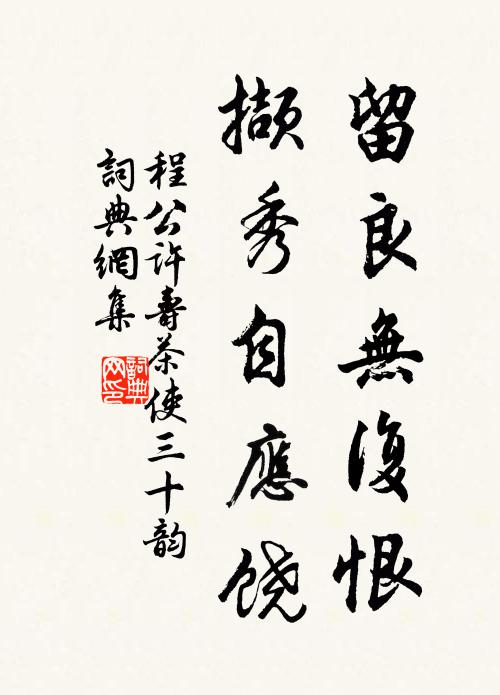 留良無復恨
擷秀自應饶
程公許壽茶使三十韵
詞典網集
詞典网印